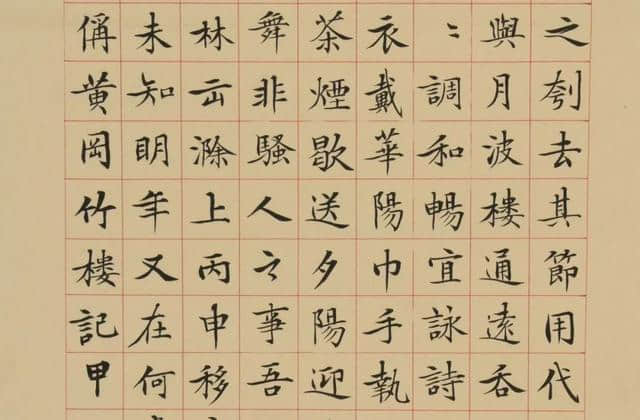 之刳去其節用代
與月波樓通遠吞
〻調和暢宜詠詩
衣戴華陽巾手執
茶煙歇送夕陽迎
舞非騷人之事吾
林出滁上丙申移
未知眀年又在何
偁黃岡竹樓記甲